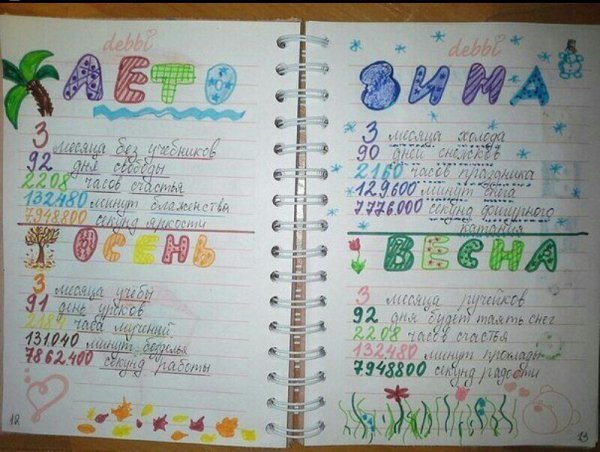 debbi
ЛЕТО
3
месяца без учебников
92 дня свободы
2208 часов счастья
132480 минут блаженства
7948800 секунд яркости
ОСЕНЬ
3
месяца учёбы
91 день уроков
2184 часа мучений
131040 минут безделья
7862.400 секунд работы
12
debbi
ЗИМА
3 месяца холода
90 дней снежков
2160 часов праздника
129600 минут
7776.000 секунд
катания
ВЕСНА
3 месяца ручейков
92 дня будет таять снег
2208 часов счастья
132480 минут прохлады
7948800 секунд радости
13